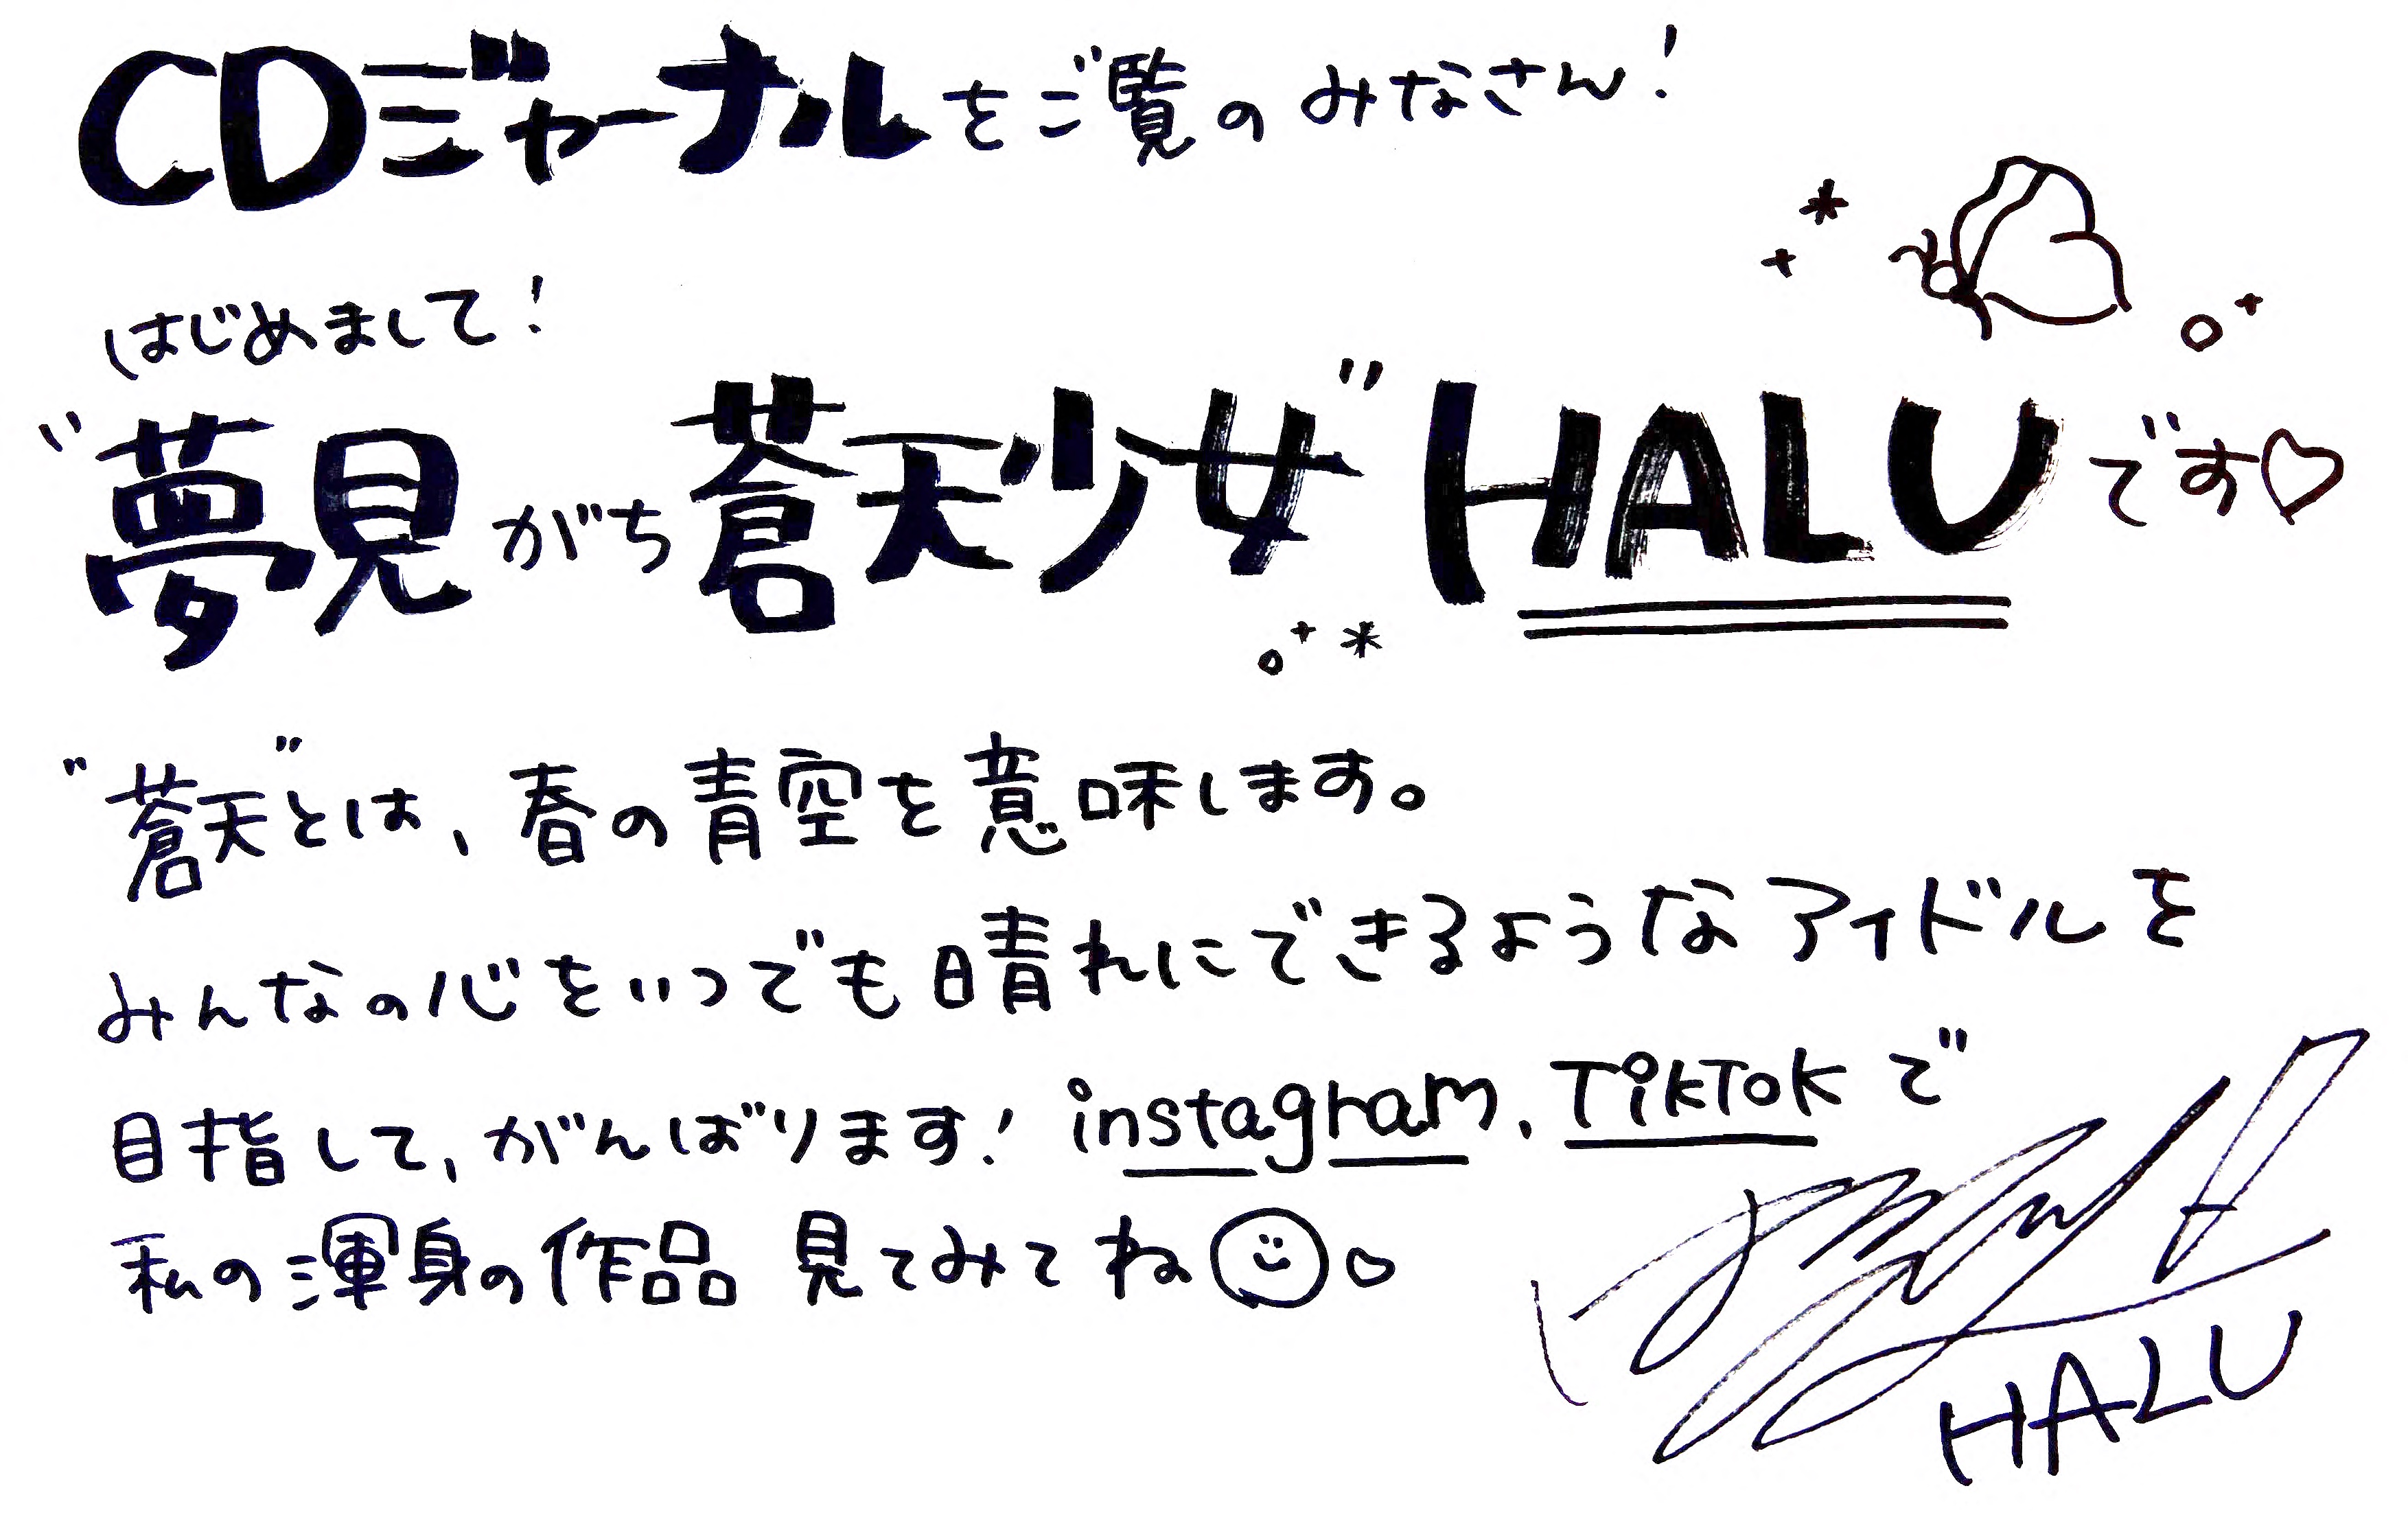 CDジャーナルをご覧のみなさん!
はじめまして!
"夢見がち蒼天少女" HALUです♡
"蒼天"とは、春の青空を意味します。
みんなの心をいつでも晴れにできるようなアイドルを
目指して、がんばります! instagram、TikTokで
私の渾身の作品 見てみてね☺♡
HALU